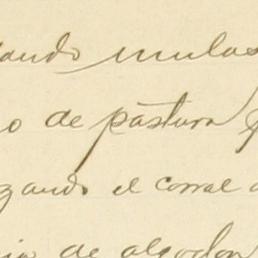 ando mulas
o de pastura
zando el corral
de algodon